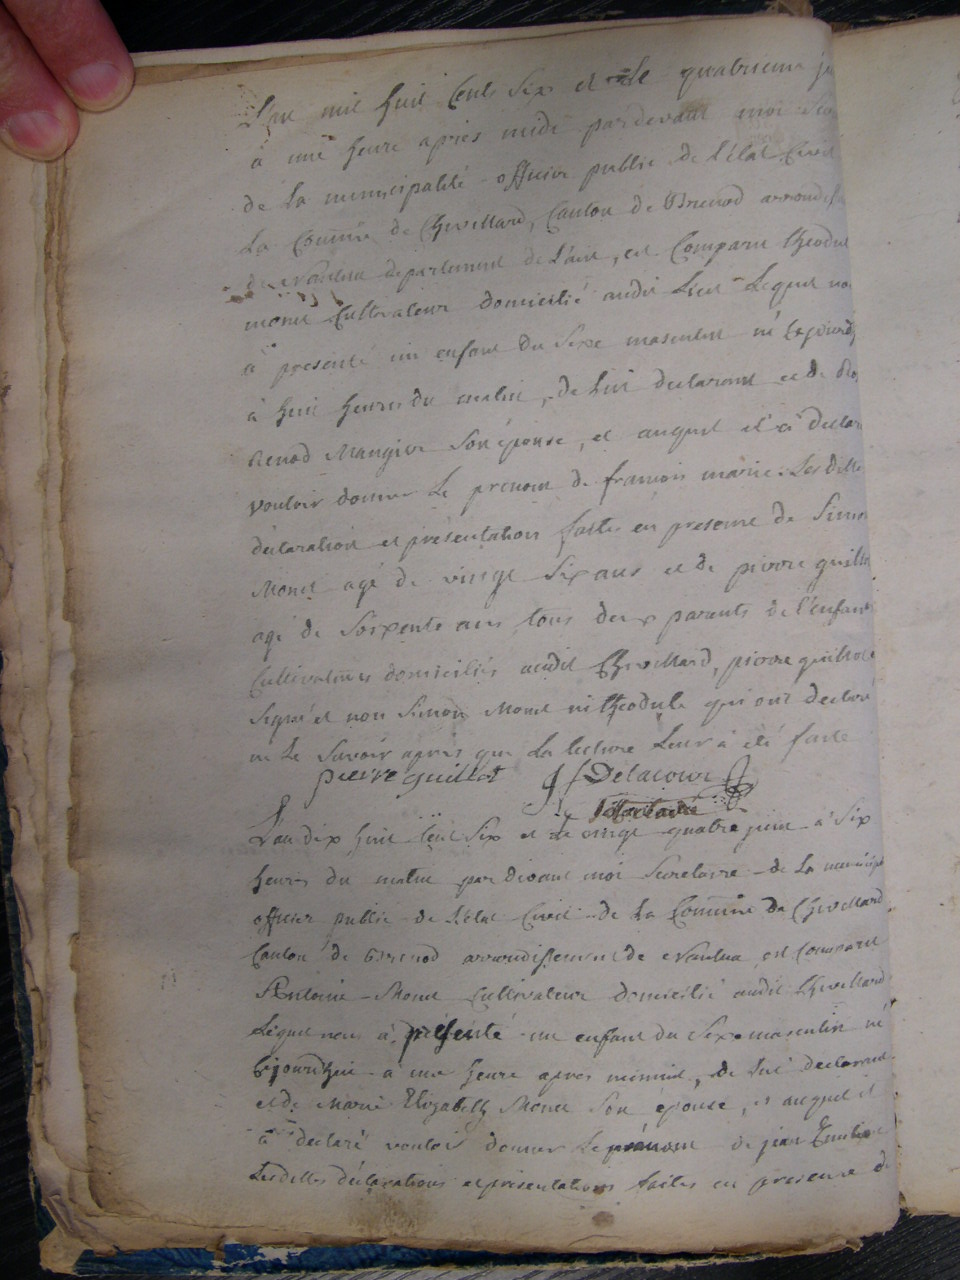 L'an mil huit Cents Six et le quatrieme
à une heure apres midi pardevant moi
de la municipalité officier public de L'état Civil
La Comune de Chevillard, Canton de Brenod arrondis
de nantua departement de L'ain, est Comparu theodul
monet Cultivateur domicilié audit Lieu Lequel
à presenté un enfant du Sexe masculin né
à huit heures du matin, de lui declarant et de
Mangier Son épouse, et auquel il à declar
vouloir donner Le prenom de francois marie. Les dittes
déclaration et présentation faittes en presence de Simon
Monet agé de vingt Six ans et de pierre guillot
agé de Soixente ans tous deux parents de L'enfant
Cultivateurs domiciliés audit Chevillard, pierre guillot à
Signé et non Simon Monet ni theodule qui ont declaré
ne Le Savoir après que La lecture Leur à été faite
pierre guillot J f Delacour
L'an dix huit Cent Six et le vingt quatre juin à Six
heures du matin par devant moi Secretaire de La municip
officier public de L'état Civil de La Comune de Chevillard
Canton de Brenod arrondissement de nantua est Comparu
Antoine Monet Cultivateur domicilié audit Chevillard
Lequel nous à présenté un enfant du Sexe masculin né
à une heure apres minuit, de lui declarant
et de Marie Elizabeth Monet Son épouse, et auquel il
à declaré vouloir donner Le prénom de jean
Les dittes déclarations et présentations faites en presence de